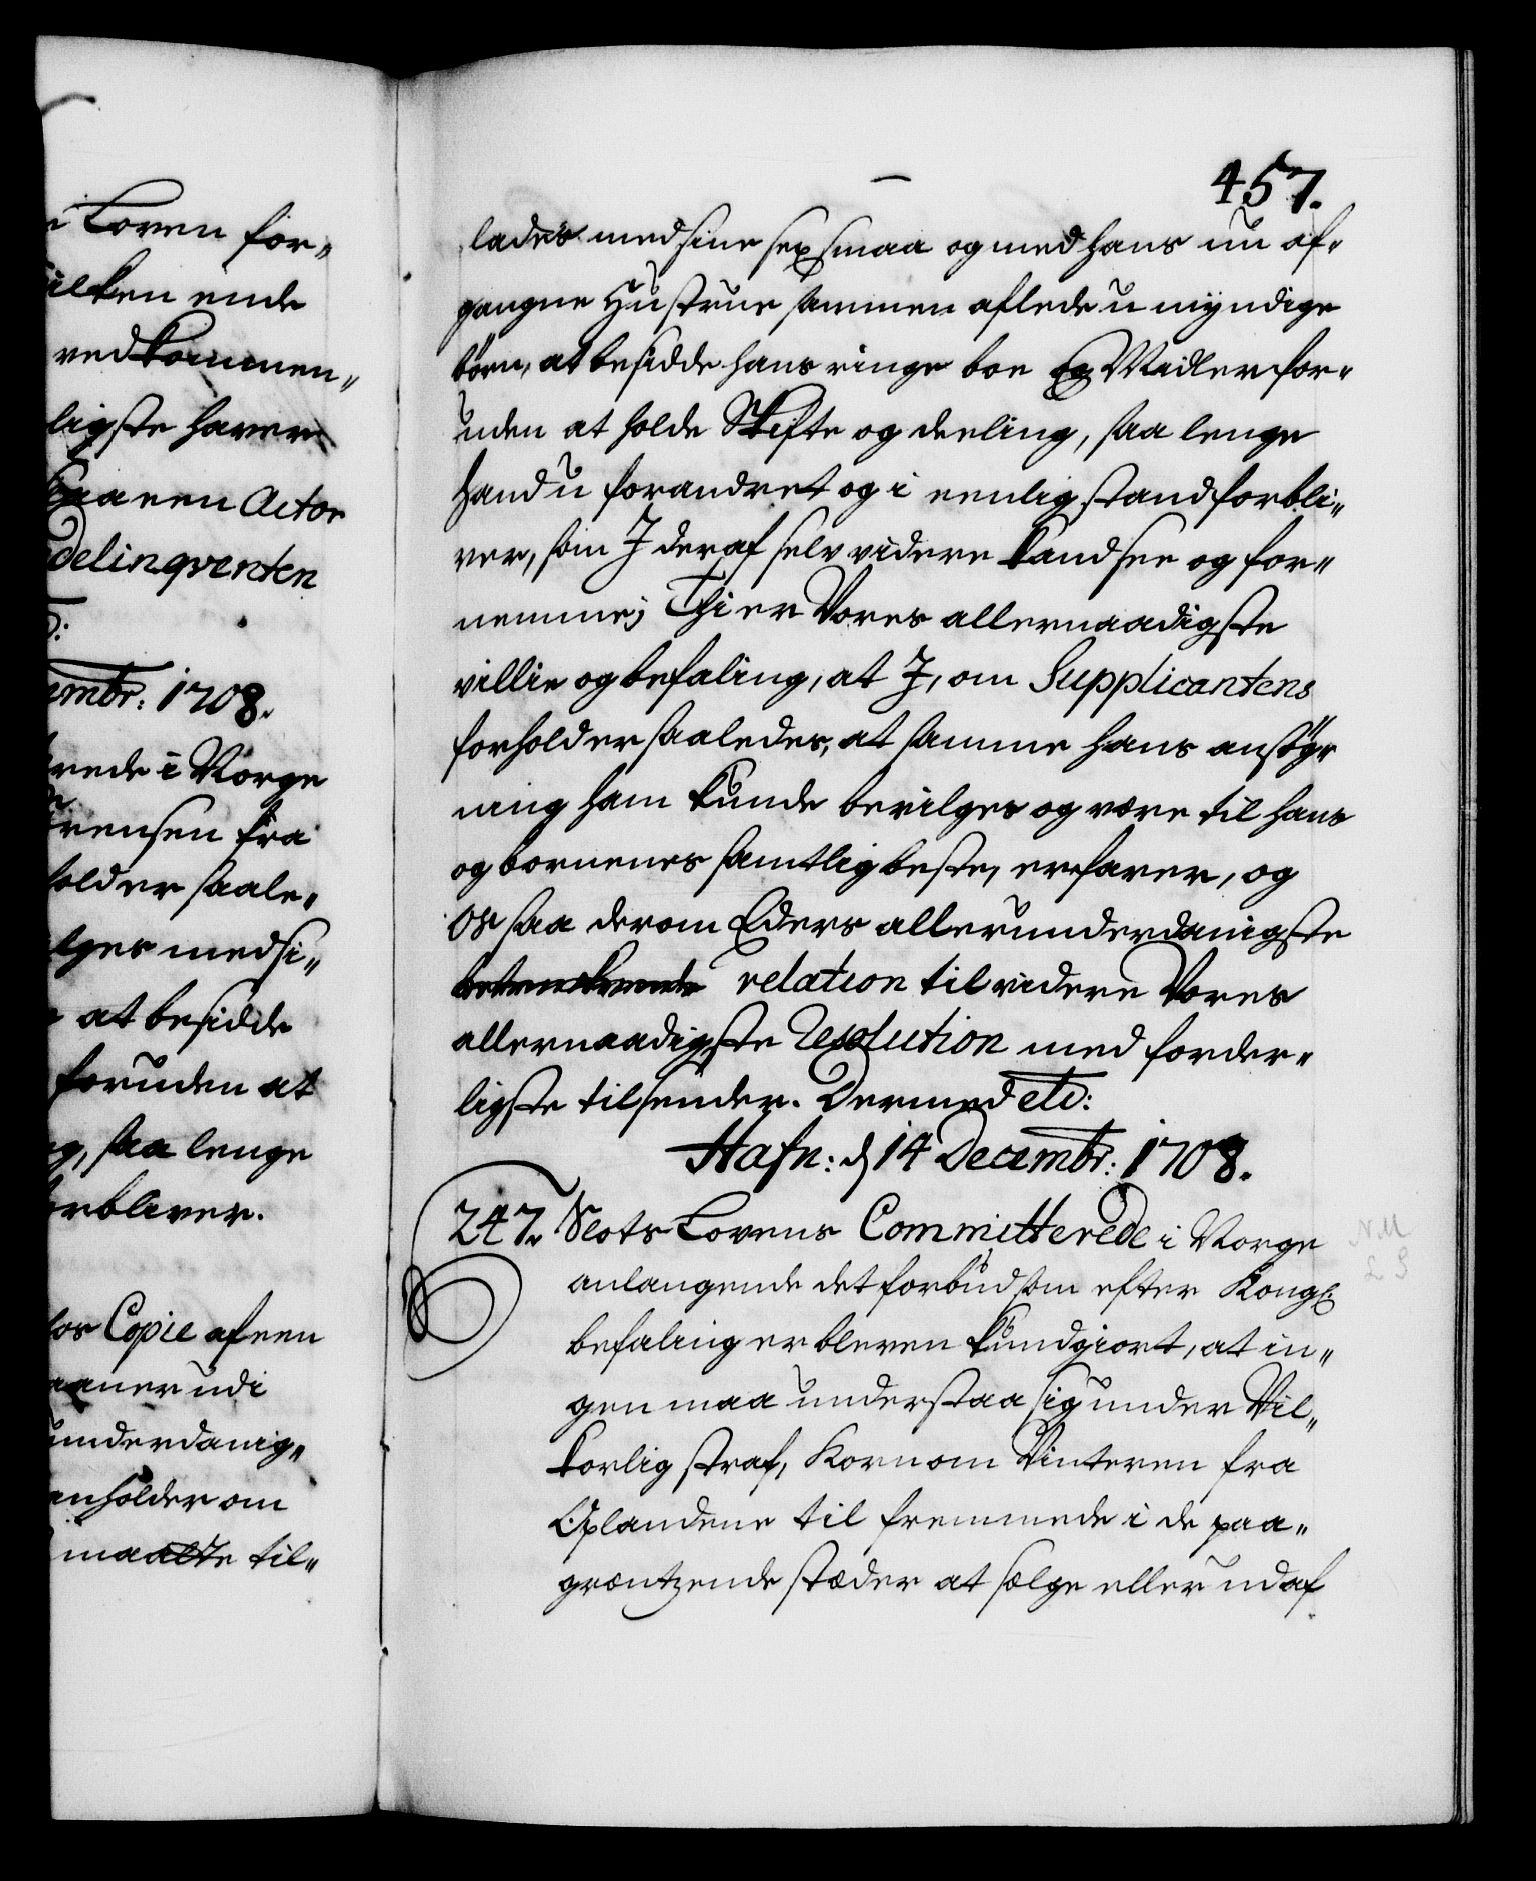 e Loven for„
ilken ende
vedkommen„
ligste haver
paa en Actor
delinqventen
embr: 1708.
rede i Norge
rensen fra
holder saale„
lges med si„
at besidde
foruden at
g, saa lenge
rbliver.
Copie af een
aaner udi
underdanig„
enholder om
maatte til„
457.
lades med sine sex smaa og med hans nu af„
gangne Hustrue sammen aflede u myndige
børn, at besidde hans ringe boe og Midler for„
uden at holde Skifte og deeling, saa lenge
hand u forandret og i eenlig stand forbli„
ver, som J deraf selv videre kand see og for„
nemme; Thi er Vores allernaadigste
villie og befaling, at J, om Supplicantens
forholder saaledes, at samme hans ansøg„
ning ham kunde bevilges og være til hans
og børnenes samtlig beste, erfarer, og
Os saa derom Eders allerunderdanigste
betenkende relation til videre Vores
allernaadigste Resolution med forder„
ligste tilsender. Dermed etc:
Hafn: d 14 Decembr: 1708.
247. Slots Lovens Committerede i Norge
anlangende det forbud som efter Kongl:
befaling er bleven kundgiort, at in„
gen maa understaa sig under Vil„
korlig straf, Korn om Vinteren fra
Oplandene til fremmede i de paa„
grentzende stæder at sælge eller udaf
N. M
L S